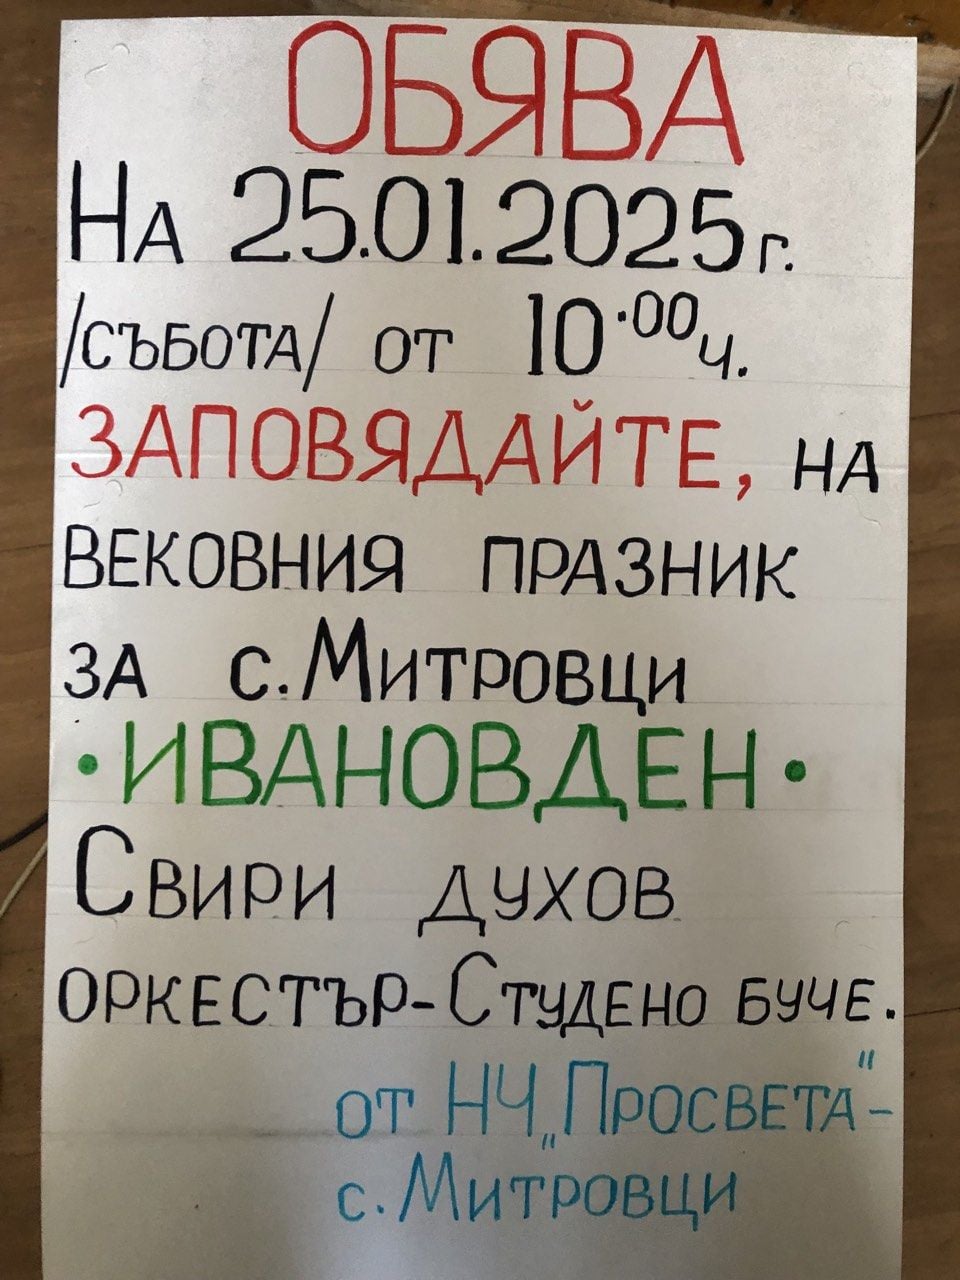 ОБЯВА
НА 25.01.2025г.
/СЪБОТА/ ОТ 10.00ч.
ЗАПОВЯДАЙТЕ, НА
ВЕКОВНИЯ ПРАЗНИК
ЗА с.МИТРОВЦИ
•ИВАНОВДЕН•
СВИРИ ДУХОВ
ОРКЕСТЪР-СТУДЕНО БУЧЕ.
ОТ НЧ„ПРОСВЕТА"-
с.МИТРОВЦИ